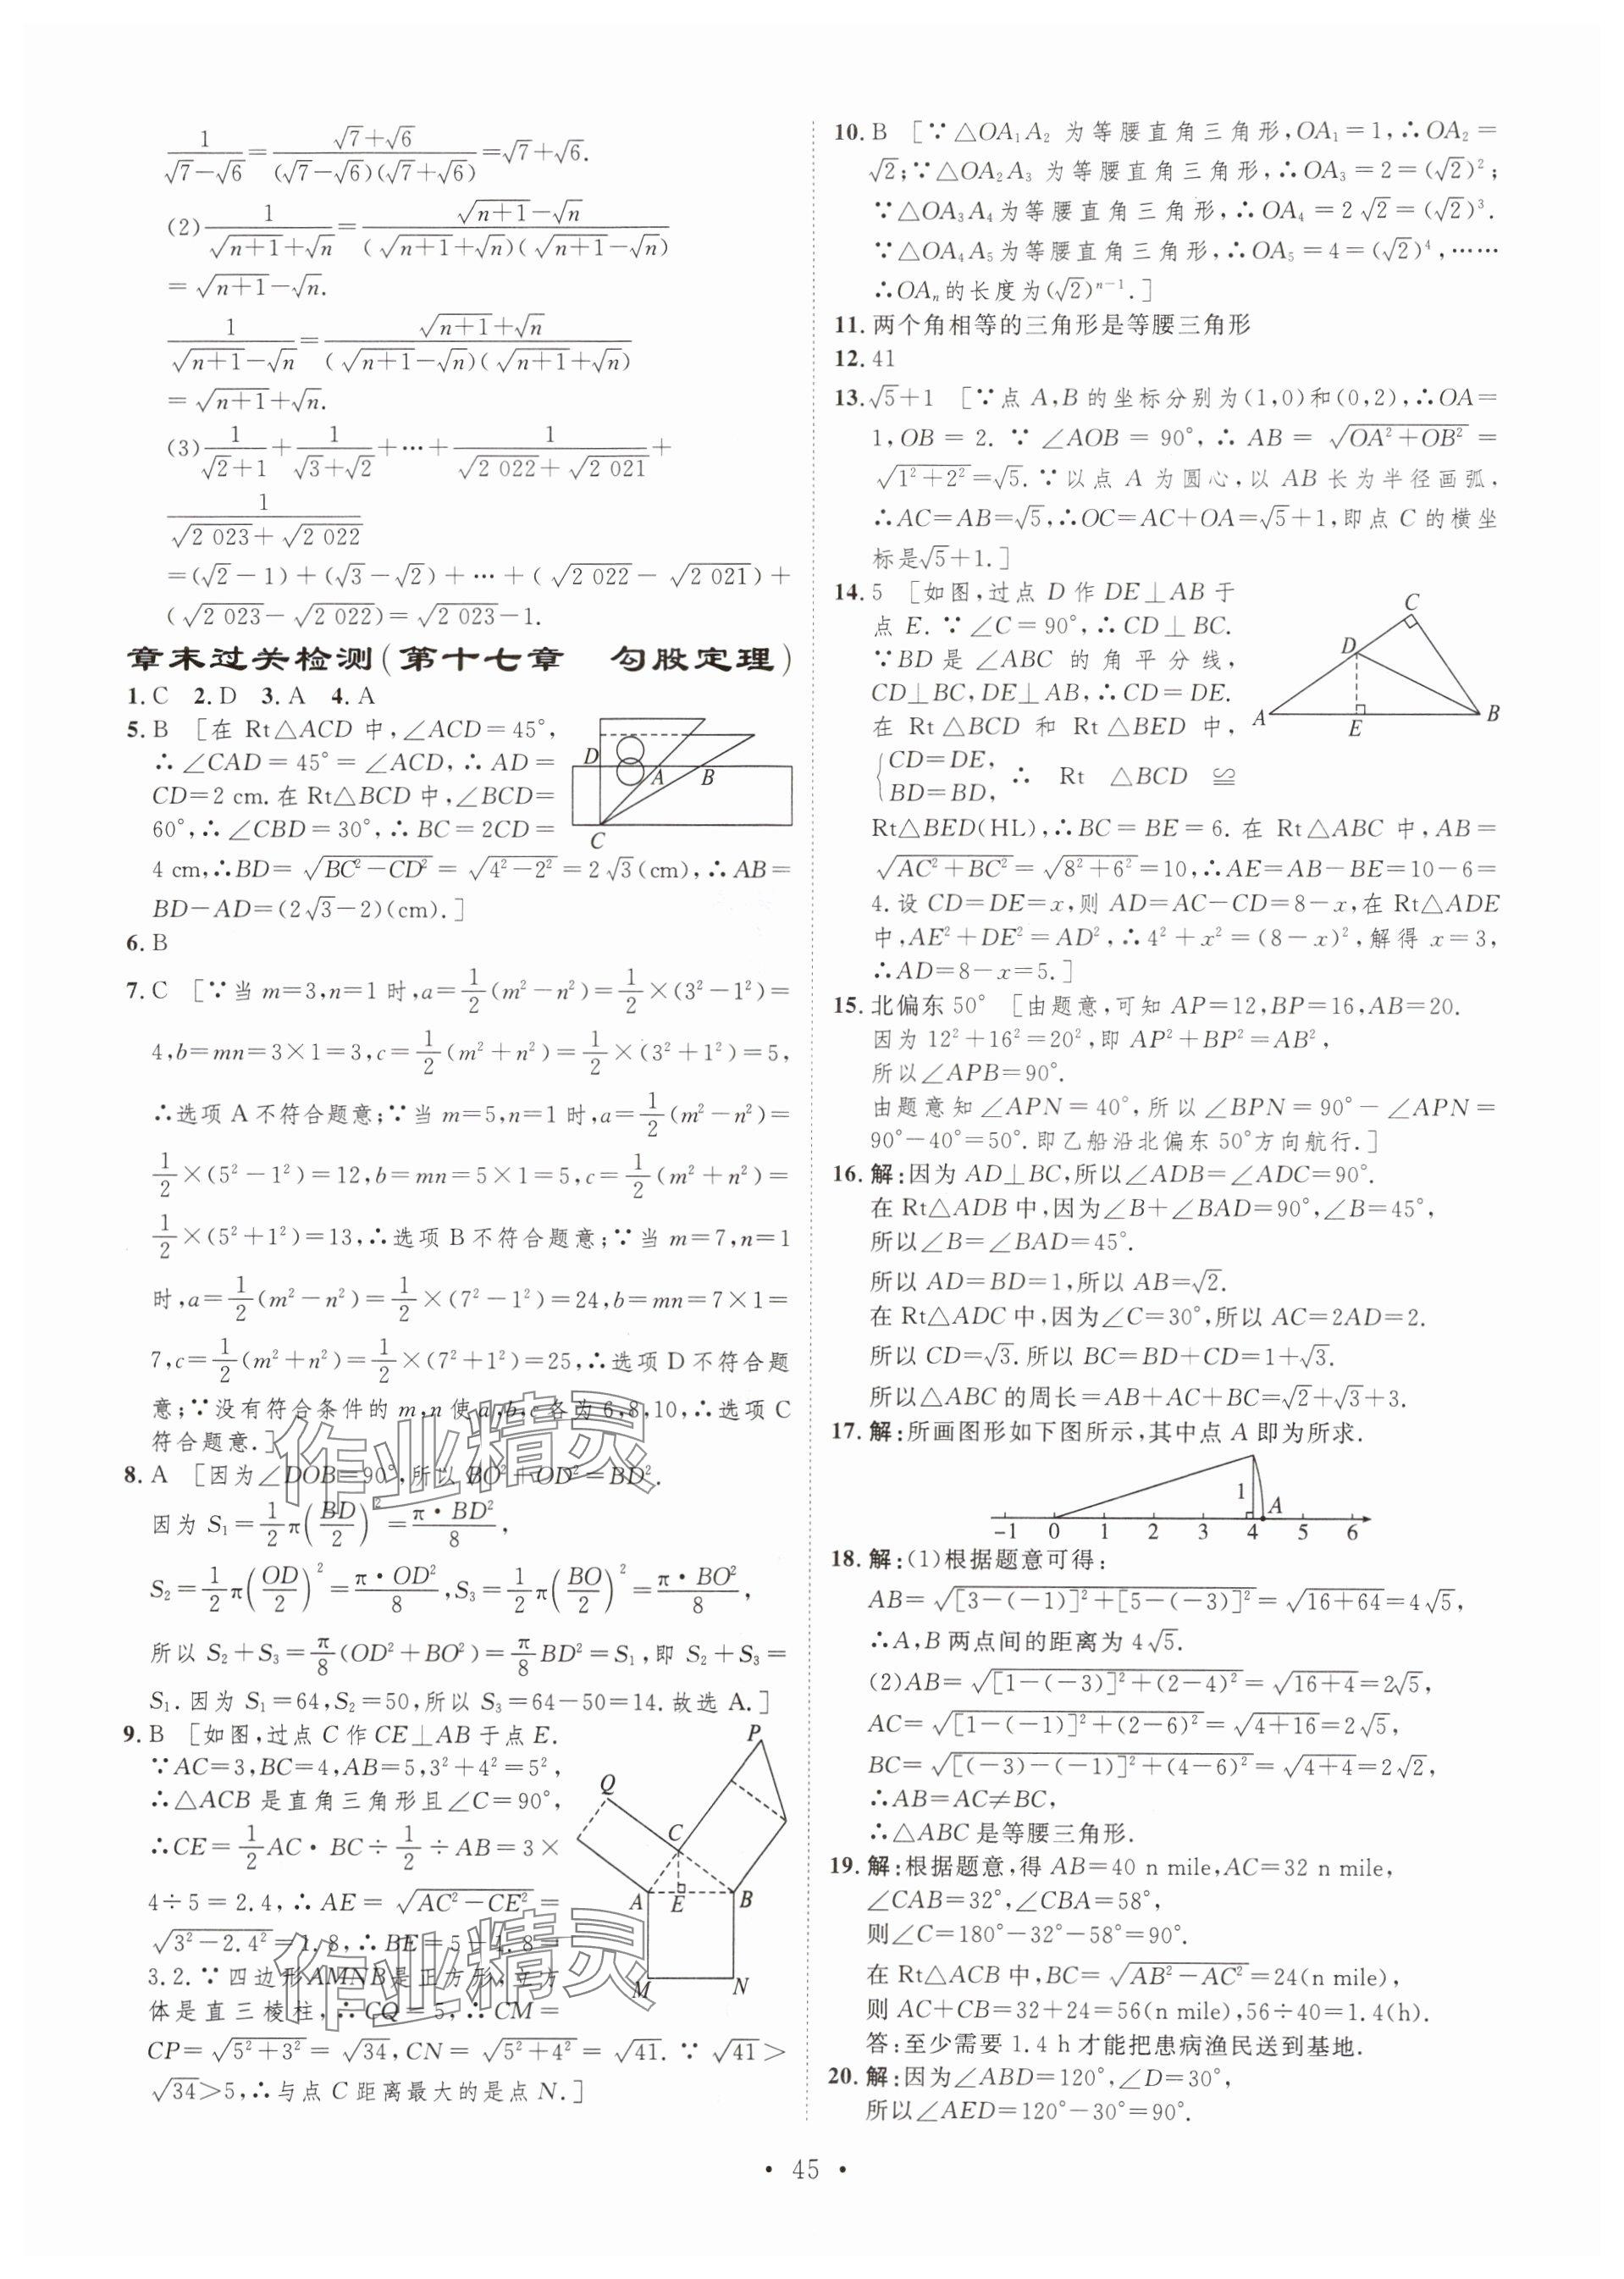 1/(√7-√6)=(√7+√6)/((√7-√6)(√7+√6))=√7+√6.
(2)1/(√(n+1)+√n)=(√(n+1)-√n)/((√(n+1)+√n)(√(n+1)-√n))
=√(n+1)-√n.
1/(√(n+1)-√n)=(√(n+1)+√n)/((√(n+1)-√n)(√(n+1)+√n))
=√(n+1)+√n.
(3)1/(√2+1)+1/(√3+√2)+…+1/(√2 022+√2 021)+
1/(√2 023+√2 022)
=(√2-1)+(√3-√2)+…+(√2 022-√2 021)+
(√2 023-√2 022)=√2 023-1.
章末过关检测(第十七章 勾股定理)
1.C 2.D 3.A 4.A
5.B [在 Rt△ACD 中,∠ACD=45°,
∴∠CAD=45°=∠ACD,∴AD=
CD=2 cm.在 Rt△BCD 中,∠BCD=
60°,∴∠CBD=30°,∴BC=2CD=
4 cm,∴BD=√(BC²-CD²)=√(4²-2²)=2√3(cm),∴AB=
BD-AD=(2√3-2)(cm).]
D A B C
6.B
7.C [∵当 m=3,n=1 时,a=1/2(m²-n²)=1/2×(3²-1²)=
4,b=mn=3×1=3,c=1/2(m²+n²)=1/2×(3²+1²)=5,
∴选项 A 不符合题意;∵当 m=5,n=1 时,a=1/2(m²-n²)=
1/2×(5²-1²)=12,b=mn=5×1=5,c=1/2(m²+n²)=
1/2×(5²+1²)=13,∴选项 B 不符合题意;∵当 m=7,n=1
时,a=1/2(m²-n²)=1/2×(7²-1²)=24,b=mn=7×1=
7,c=1/2(m²+n²)=1/2×(7²+1²)=25,∴选项 D 不符合题
意;∵没有符合条件的 m,n 使 a,b,c 各为 6,8,10,∴选项 C
符合题意.]
8.A [因为∠DOB=90°,所以 BO²+OD²=BD².
因为 S₁=1/2π(BD/2)²=π·BD²/8,
S₂=1/2π(OD/2)²=π·OD²/8,S₃=1/2π(BO/2)²=π·BO²/8,
所以 S₂+S₃=π/8(OD²+BO²)=π/8BD²=S₁,即 S₂+S₃=
S₁.因为 S₁=64,S₂=50,所以 S₃=64-50=14.故选 A.]
9.B [如图,过点 C 作 CE⊥AB 于点 E.
∵AC=3,BC=4,AB=5,3²+4²=5²,
∴△ACB 是直角三角形且∠C=90°,
∴CE=1/2AC·BC÷1/2÷AB=3×
4÷5=2.4,∴AE=√(AC²-CE²)=
√(3²-2.4²)=1.8,∴BE=5-1.8=
3.2.∵四边形 AMNB 是正方形,立方
体是直三棱柱,∴CQ=5,∴CM=
CP=√(5²+3²)=√34,CN=√(5²+4²)=√41.∵√41>
√34>5,∴与点 C 距离最大的是点 N.]
P Q C A E B M N
作业精灵
作业精灵
10.B [∵△OA₁A₂ 为等腰直角三角形,OA₁=1,∴OA₂=
√2;∵△OA₂A₃ 为等腰直角三角形,∴OA₃=2=(√2)²;
∵△OA₃A₄为等腰直角三角形,∴OA₄=2√2=(√2)³.
∵△OA₄A₅为等腰直角三角形,∴OA₅=4=(√2)⁴,……
∴OAₙ的长度为(√2)ⁿ⁻¹.]
11.两个角相等的三角形是等腰三角形
12.41
13.√5+1 [∵点 A,B 的坐标分别为(1,0)和(0,2),∴OA=
1,OB=2.∵∠AOB=90°,∴AB=√(OA²+OB²)=
√(1²+2²)=√5.∵以点 A 为圆心,以 AB 长为半径画弧,
∴AC=AB=√5,∴OC=AC+OA=√5+1,即点 C 的横坐
标是√5+1.]
14.5 [如图,过点 D 作 DE⊥AB 于
点 E.∵∠C=90°,∴CD⊥BC.
∵BD 是∠ABC 的角平分线,
CD⊥BC,DE⊥AB,∴CD=DE.
在 Rt△BCD 和 Rt△BED 中,
{CD=DE,
BD=BD, ∴ Rt △BCD ≌
Rt△BED(HL),∴BC=BE=6.在 Rt△ABC 中,AB=
√(AC²+BC²)=√(8²+6²)=10,∴AE=AB-BE=10-6=
4.设 CD=DE=x,则 AD=AC-CD=8-x,在 Rt△ADE
中,AE²+DE²=AD²,∴4²+x²=(8-x)²,解得 x=3,
∴AD=8-x=5.]
C D A E B
15.北偏东 50° [由题意,可知 AP=12,BP=16,AB=20.
因为 12²+16²=20²,即 AP²+BP²=AB²,
所以∠APB=90°.
由题意知∠APN=40°,所以∠BPN=90°-∠APN=
90°-40°=50°.即乙船沿北偏东 50°方向航行.]
16.解:因为 AD⊥BC,所以∠ADB=∠ADC=90°.
在 Rt△ADB 中,因为∠B+∠BAD=90°,∠B=45°,
所以∠B=∠BAD=45°.
所以 AD=BD=1,所以 AB=√2.
在 Rt△ADC 中,因为∠C=30°,所以 AC=2AD=2.
所以 CD=√3.所以 BC=BD+CD=1+√3.
所以△ABC 的周长=AB+AC+BC=√2+√3+3.
17.解:所画图形如下图所示,其中点 A 即为所求.
1 A
-1 0 1 2 3 4 5 6
18.解:(1)根据题意可得:
AB=√([3-(-1)]²+[5-(-3)]²)=√(16+64)=4√5,
∴A,B 两点间的距离为 4√5.
(2)AB=√([1-(-3)]²+(2-4)²)=√(16+4)=2√5,
AC=√([1-(-1)]²+(2-6)²)=√(4+16)=2√5,
BC=√([(-3)-(-1)]²+(4-6)²)=√(4+4)=2√2,
∴AB=AC≠BC,
∴△ABC 是等腰三角形.
19.解:根据题意,得 AB=40 n mile,AC=32 n mile,
∠CAB=32°,∠CBA=58°,
则∠C=180°-32°-58°=90°.
在 Rt△ACB 中,BC=√(AB²-AC²)=24(n mile),
则 AC+CB=32+24=56(n mile),56÷40=1.4(h).
答:至少需要 1.4 h 才能把患病渔民送到基地.
20.解:因为∠ABD=120°,∠D=30°,
所以∠AED=120°-30°=90°.
• 45 •